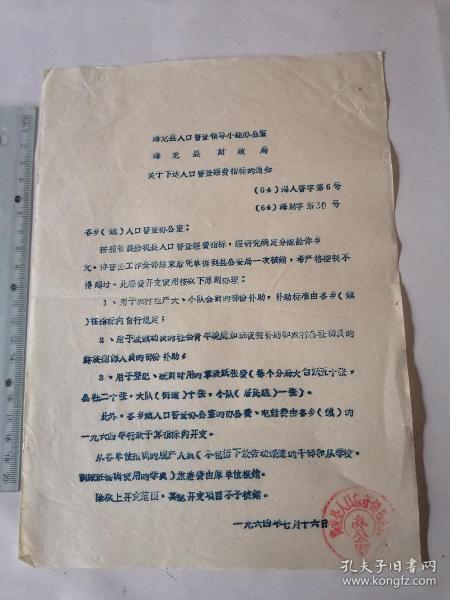 海龙县人口普查领导小组办公室
海龙县财政局
关于下达人口普查经费指标的通知
(64)海人普字第6号
(64)海财字第30号
各乡(镇)人口普查办公室:
按照省拨给我县人口普查经费指标,经研究确定分配给你乡
元,待普查工作全部结束后凭单据到县公安局一次核销,希严格控制不
得超过。此经费开支使用按以下原则办理:
1、用于农村生产大、小队会计的部份补助,补助标准由各乡(镇)
在指标内自行规定;
2、用于城镇动员的社会青年晚间加班夜餐补助和农村公社动员的
部份补助;
3、用于登记、统计时用的草表纸张费(每个分局大白纸五十张,
公社二十张,大队(街道)十张,小队(居民组)一张)。
此外,各乡镇人口普查办公室的办公费、电话费由各乡(镇)的
一九六四年行政予算指标内开支。
从各单位抽调的脱产人员(不包括下放劳动锻炼的干部和从学校、
使用的学员)旅差费由原单位核销。
除以上开支范围,其他开支项目不予核销。
一九六四年七月十六日
办公室
孔夫子旧书网
www.kongfz.com